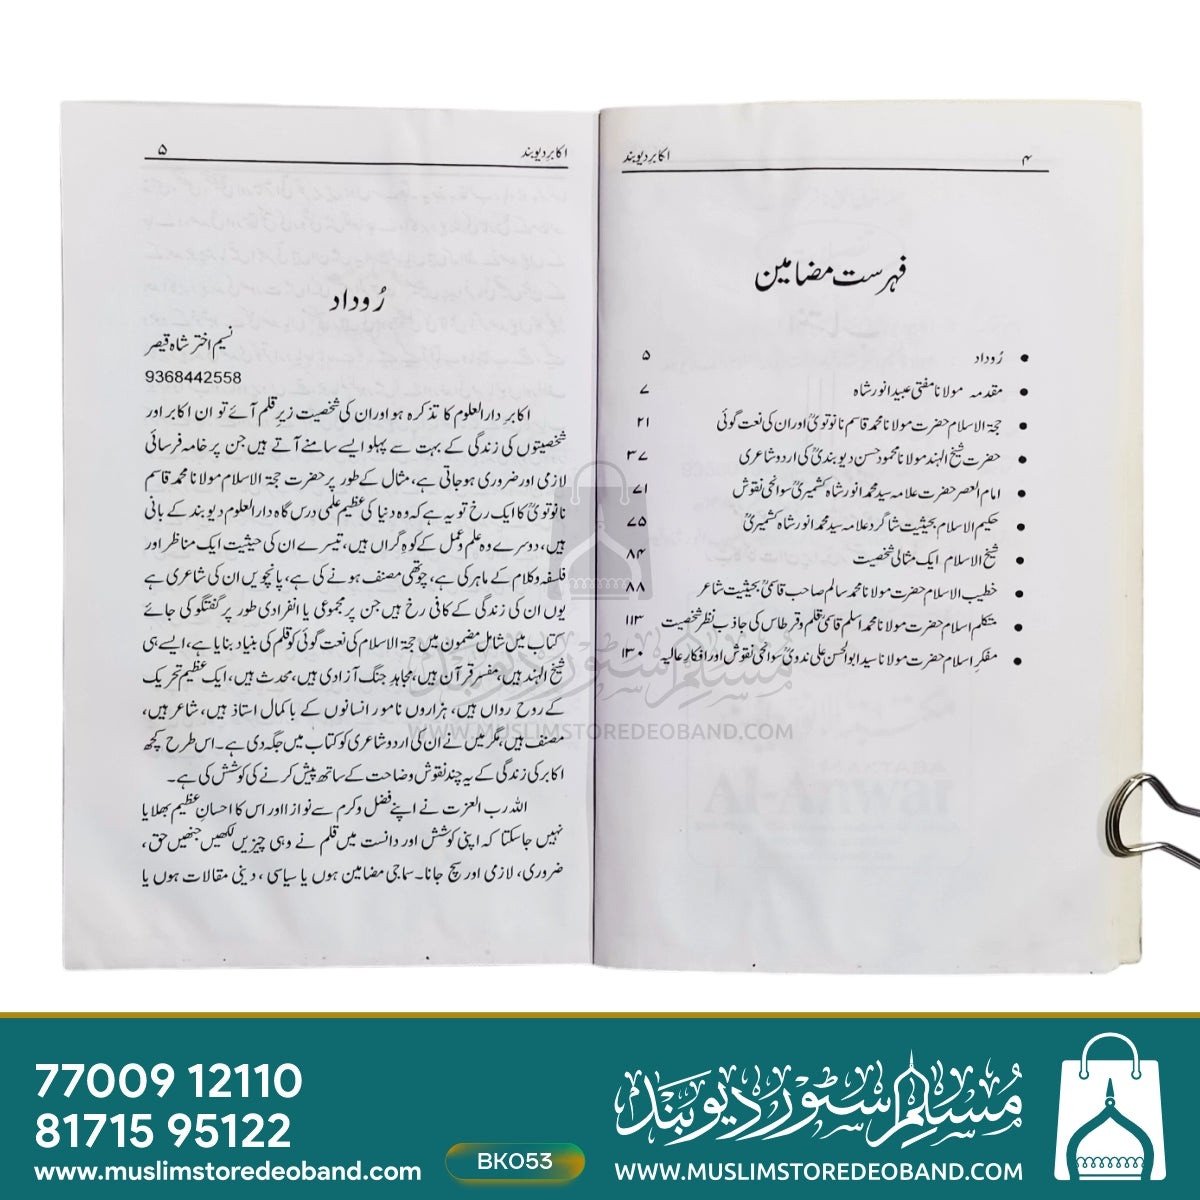 ۴
اکابر دیوبند
فہرست مضامین
• رُوداد ۵
• مقدمہ مولانا مفتی عبید انور شاہ ۷
• حجۃ الاسلام حضرت مولانا محمد قاسم نانوتویؒ اور ان کی نعت گوئی ۲۱
• حضرت شیخ الہند مولانا محمود حسن دیوبندیؒ کی اردو شاعری ۳۷
• امام العصر حضرت علامہ سید محمد انور شاہ کشمیریؒ سوانحی نقوش ۷۱
• حکیم الاسلام بحیثیت شاگرد علامہ سید محمد انور شاہ کشمیریؒ ۷۵
• شیخ الاسلام ایک مثالی شخصیت ۸۴
• خطیب الاسلام حضرت مولانا محمد سالم صاحب قاسمیؒ بحیثیت شاعر ۸۸
• متکلم اسلام حضرت مولانا محمد اسلم قاسمیؒ قلم و قرطاس کی جاذب نظر شخصیت ۱۱۳
• مفکر اسلام حضرت مولانا سید ابوالحسن علی ندویؒ سوانحی نقوش اور افکار عالیہ ۱۳۰
اکابر دیوبند
۵
رُوداد
نسیم اختر شاہ قیصر
9368442558
اکابرِ دارالعلوم کا تذکرہ ہو اور ان کی شخصیت زیرِ قلم آئے تو ان اکابر اور
شخصیتوں کی زندگی کے بہت سے پہلو ایسے سامنے آتے ہیں جن پر خامہ فرسائی
لازمی اور ضروری ہو جاتی ہے، مثال کے طور پر حضرت حجۃ الاسلام مولانا محمد قاسم
نانوتویؒ کا ایک رخ تو یہ ہے کہ وہ دنیا کی عظیم علمی درس گاہ دارالعلوم دیوبند کے بانی
ہیں، دوسرے وہ علم و عمل کے کوہِ گراں ہیں، تیسرے ان کی حیثیت ایک مناظر اور
فلسفہ و کلام کے ماہر کی ہے، چوتھی مصنف ہونے کی ہے، پانچویں ان کی شاعری ہے
یوں ان کی زندگی کے کافی رخ ہیں جن پر مجموعی یا انفرادی طور پر گفتگو کی جائے
کتاب میں شامل مضمون میں حجۃ الاسلام کی نعت گوئی کو قلم کی بنیاد بنایا ہے، ایسے ہی
شیخ الہند ہیں، مفسرِ قرآن ہیں، مجاہدِ جنگ آزادی ہیں، محدث ہیں، ایک عظیم تحریک
کے روح رواں ہیں، ہزاروں نامور انسانوں کے باکمال استاذ ہیں، شاعر ہیں،
مصنف ہیں، مگر میں نے ان کی اردو شاعری کو کتاب میں جگہ دی ہے۔ اس طرح کچھ
اکابر کی زندگی کے یہ چند نقوش وضاحت کے ساتھ پیش کرنے کی کوشش کی ہے۔
اللہ رب العزت نے اپنے فضل و کرم سے نوازا اور اس کا احسانِ عظیم بھلایا
نہیں جا سکتا کہ اپنی کوشش اور دانست میں قلم نے وہی چیزیں لکھیں جنھیں حق،
ضروری، لازمی اور سچ جانا۔ سماجی مضامین ہوں یا سیاسی، دینی مقالات ہوں یا
مسلم سٹور دیوبند
WWW.MUSLIMSTOREDEOBAND.COM
77009 12110
81715 95122
www.muslimstoredeoband.com
BK053
مُسلم سٹور دیوبند
WWW.MUSLIMSTOREDEOBAND.COM